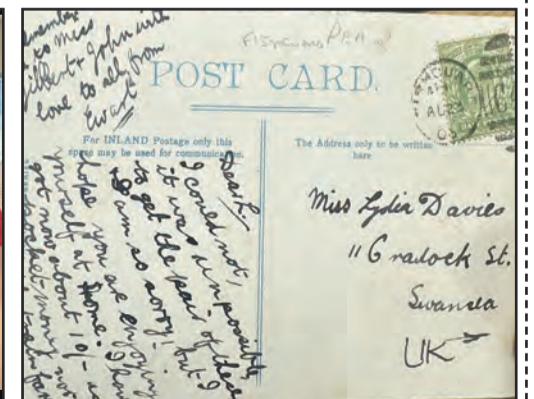 Remember
to miss
Gilbert & John with
love to all from
Ewart
POST CARD.
For INLAND Postage only this
space may be used for communication.
The Address only to be written
here
AU 23
Dear L,
I could not,
it was impossible,
to get the pair of these
but I
am so sorry!
hope you are enjoying
yourself at home. I have
got now about 10/- as
pocket-money now
train fare
Miss Lydia Davies
11 Cradock St.
Swansea
UK